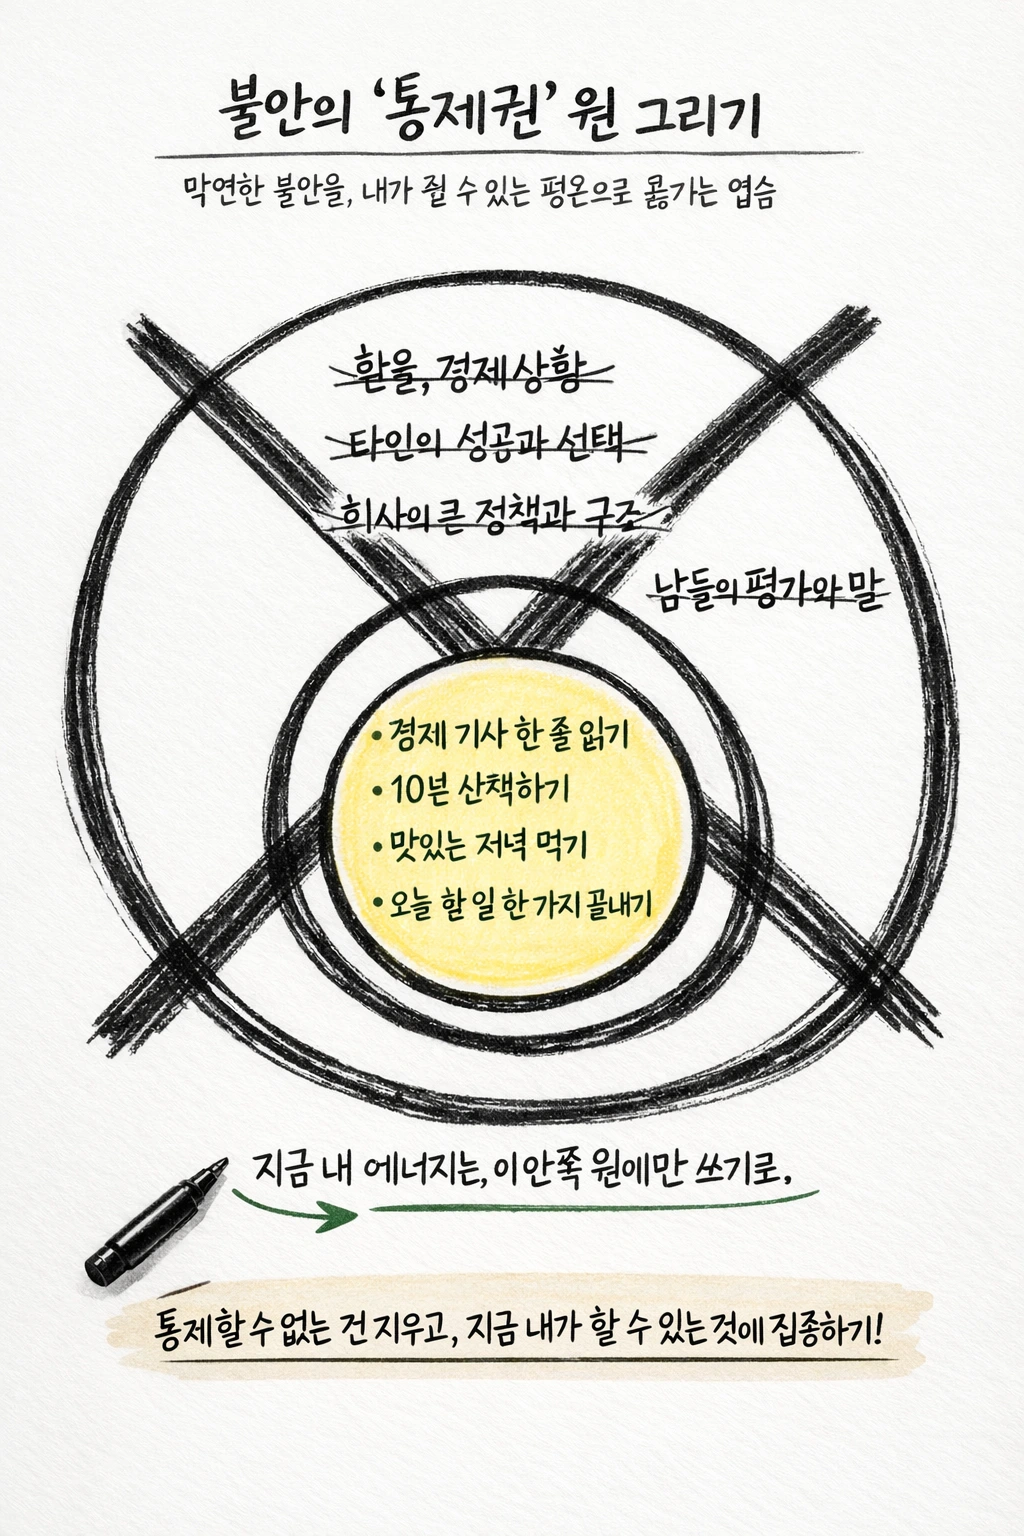 불안의 ‘통제권’ 원 그리기
막연한 불안을, 내가 쥘 수 있는 평온으로 가는 엽슴
환율, 경제 상황
타인의 성공과 선택
희사의 큰 정책과 구조
남들의 평가와 말
• 경제 기사 한 졸 읽기
• 10분 산책하기
• 맛있는 저녁 먹기
• 오늘 할 일 한 가지 골내기
지금 내 에너지는, 이 안쪽 원에만 쓰기로.
통제할 수 없는 건 지우고, 지금 내가 할 수 있는 것에 집종하기!